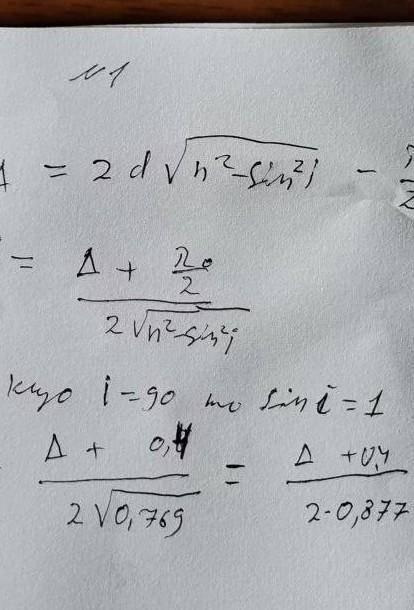 №1
Δ = 2d√(n²-sin²i) - λ/2
= (Δ + λ₀/2) / (2√(n²-sin²i))
i=90 то sin i=1
(Δ + 0,4) / (2√0,769) = (Δ + 0,4) / (2·0,877)